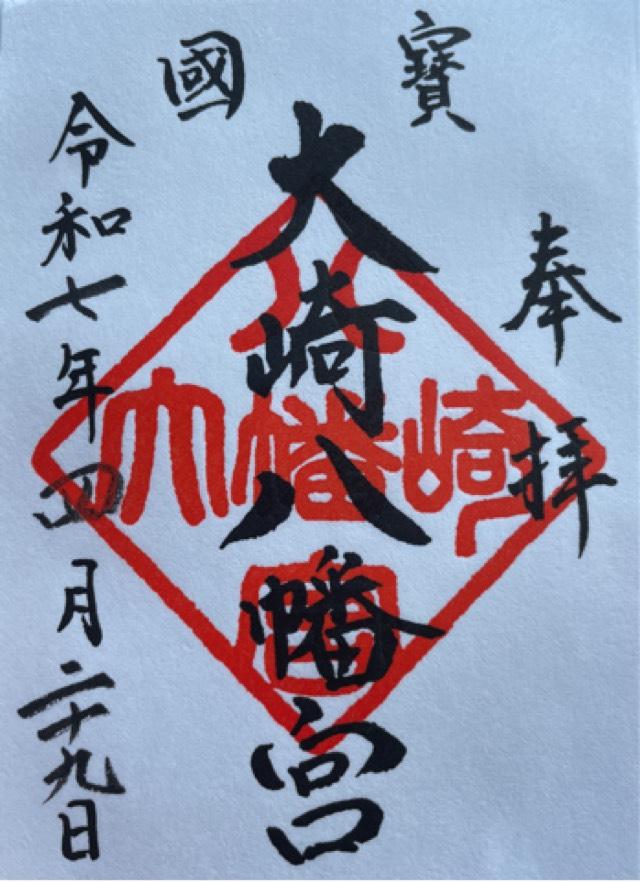 國寶
奉拝
大崎八幡宮
令和七年四月二十九日
八
大幡崎
宮